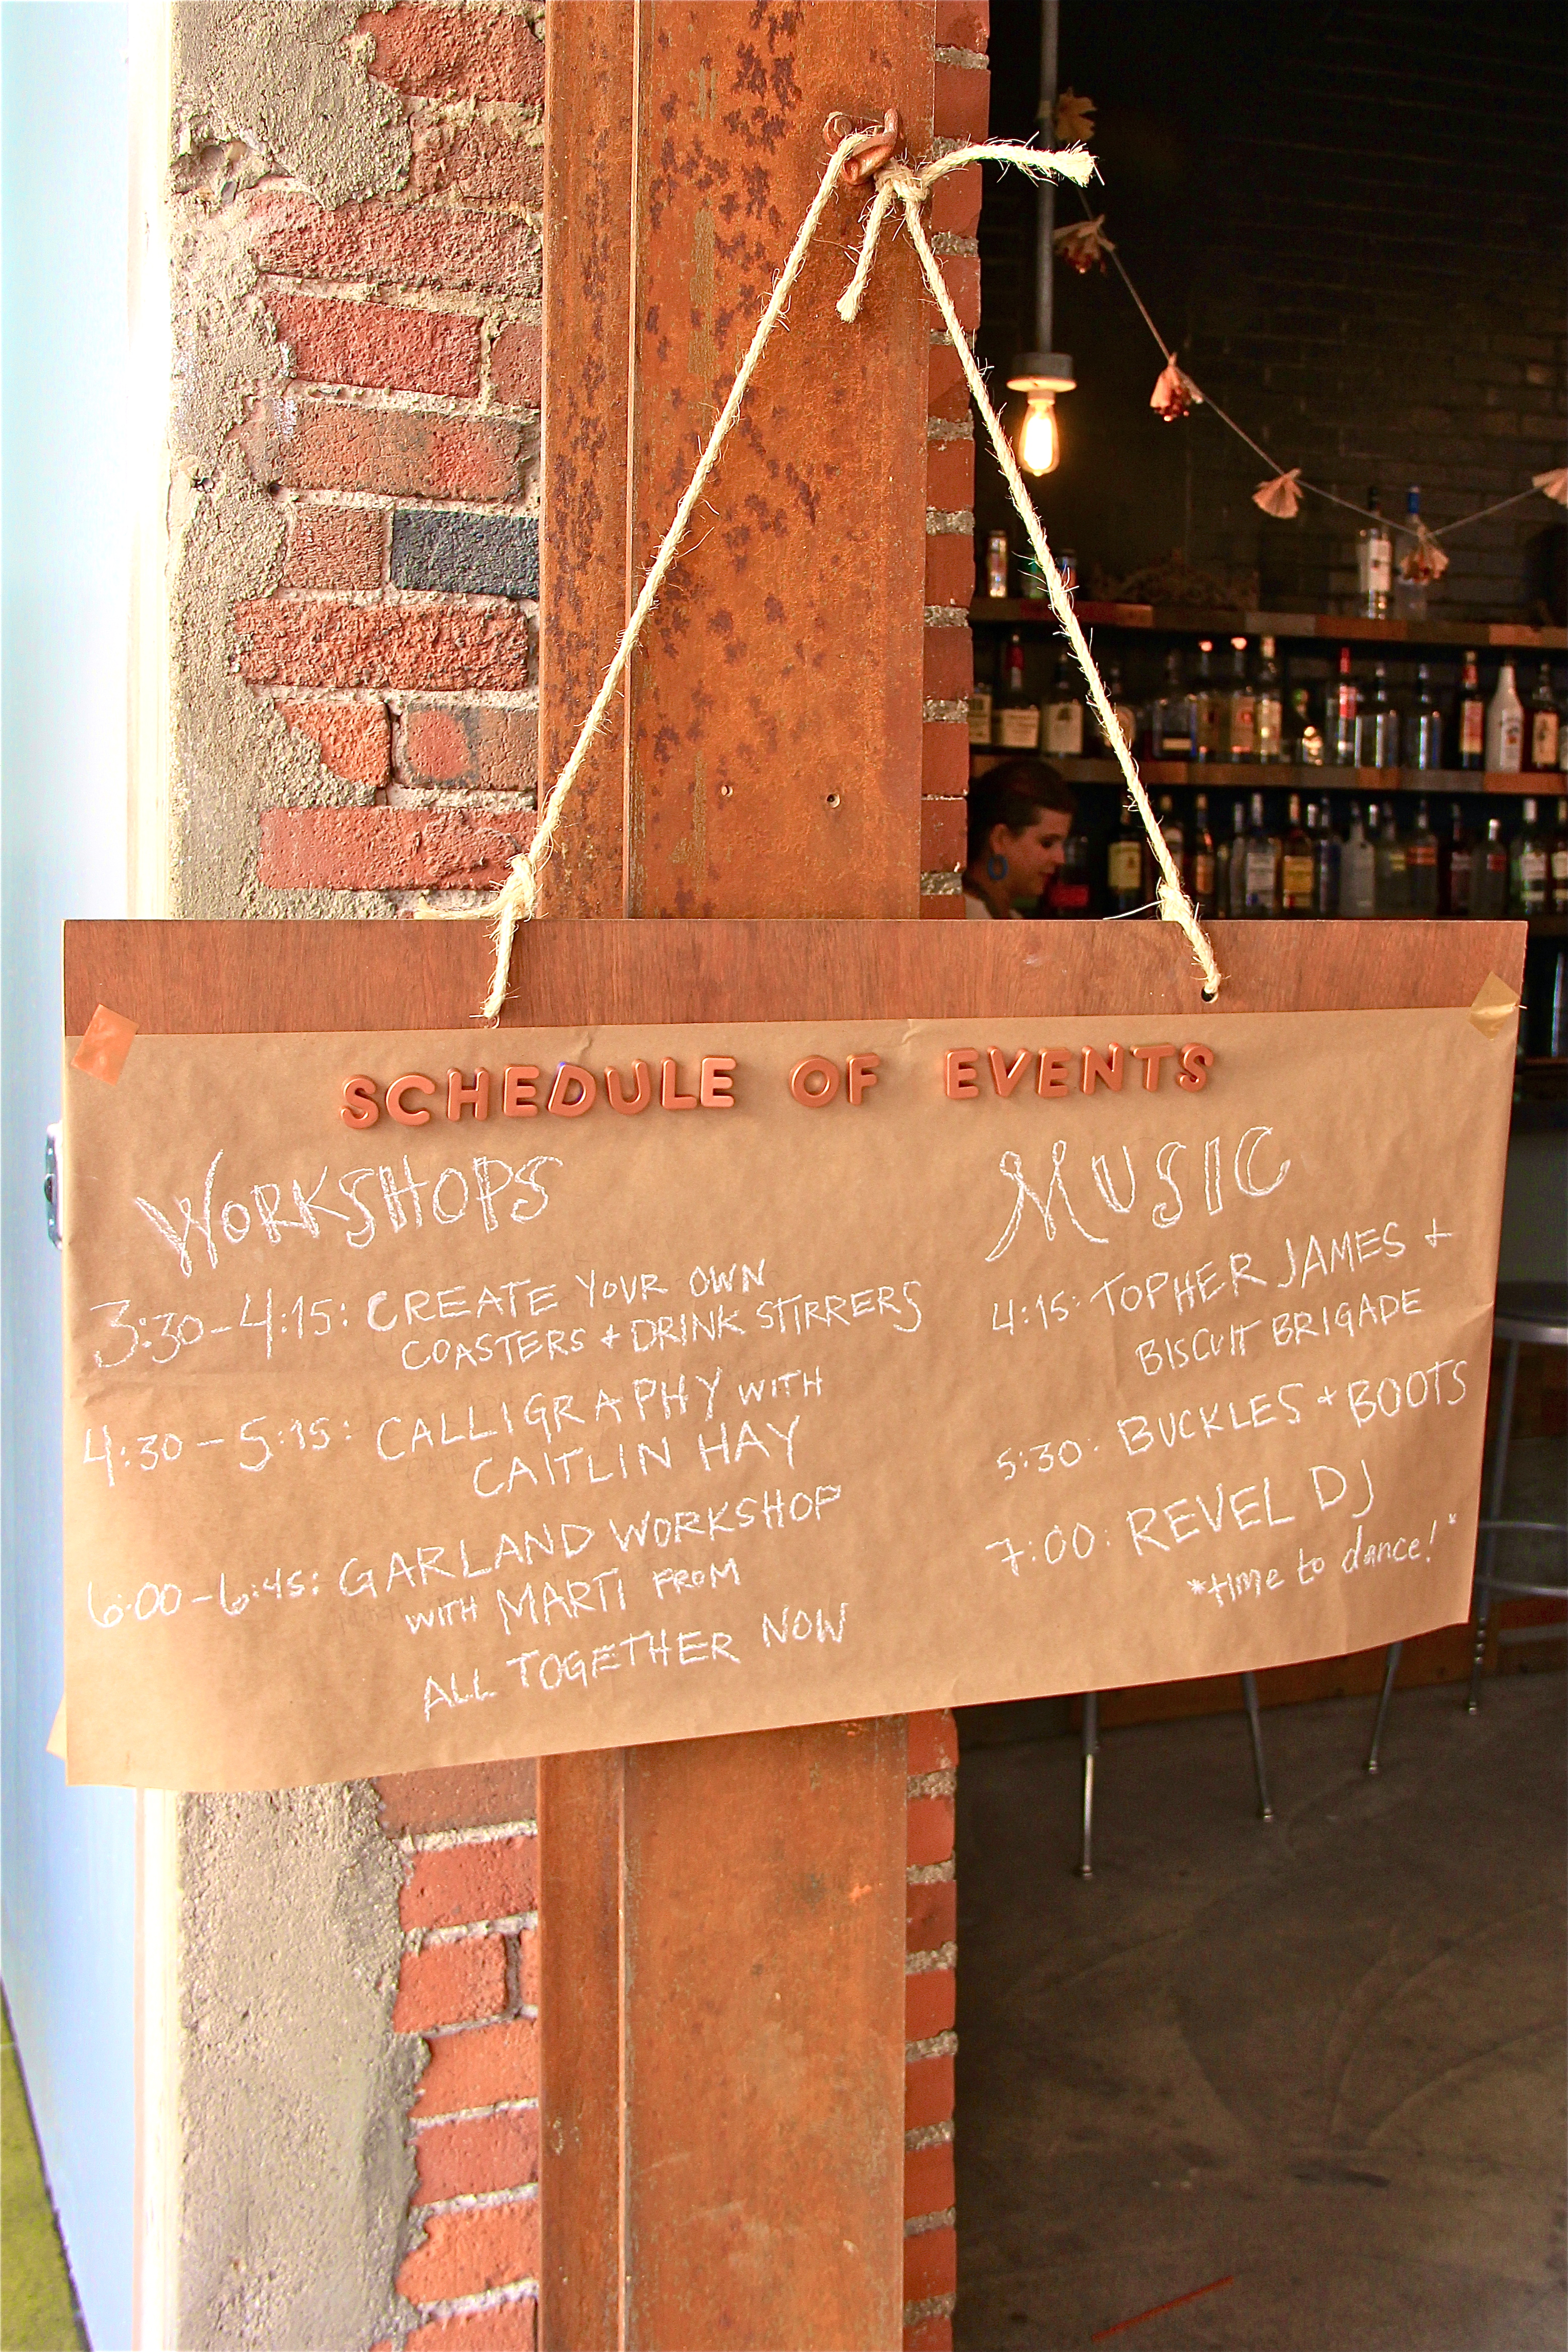 SCHEDULE OF EVENTS
WORKSHOPS
3:30-4:15: CREATE YOUR OWN
COASTERS + DRINK STIRRERS
4:30-5:15: CALLIGRAPHY WITH
CAITLIN HAY
6:00-6:45: GARLAND WORKSHOP
WITH MARTI FROM
ALL TOGETHER NOW
MUSIC
4:15: TOPHER JAMES +
BISCUIT BRIGADE
5:30: BUCKLES + BOOTS
7:00: REVEL DJ
*time to dance!*